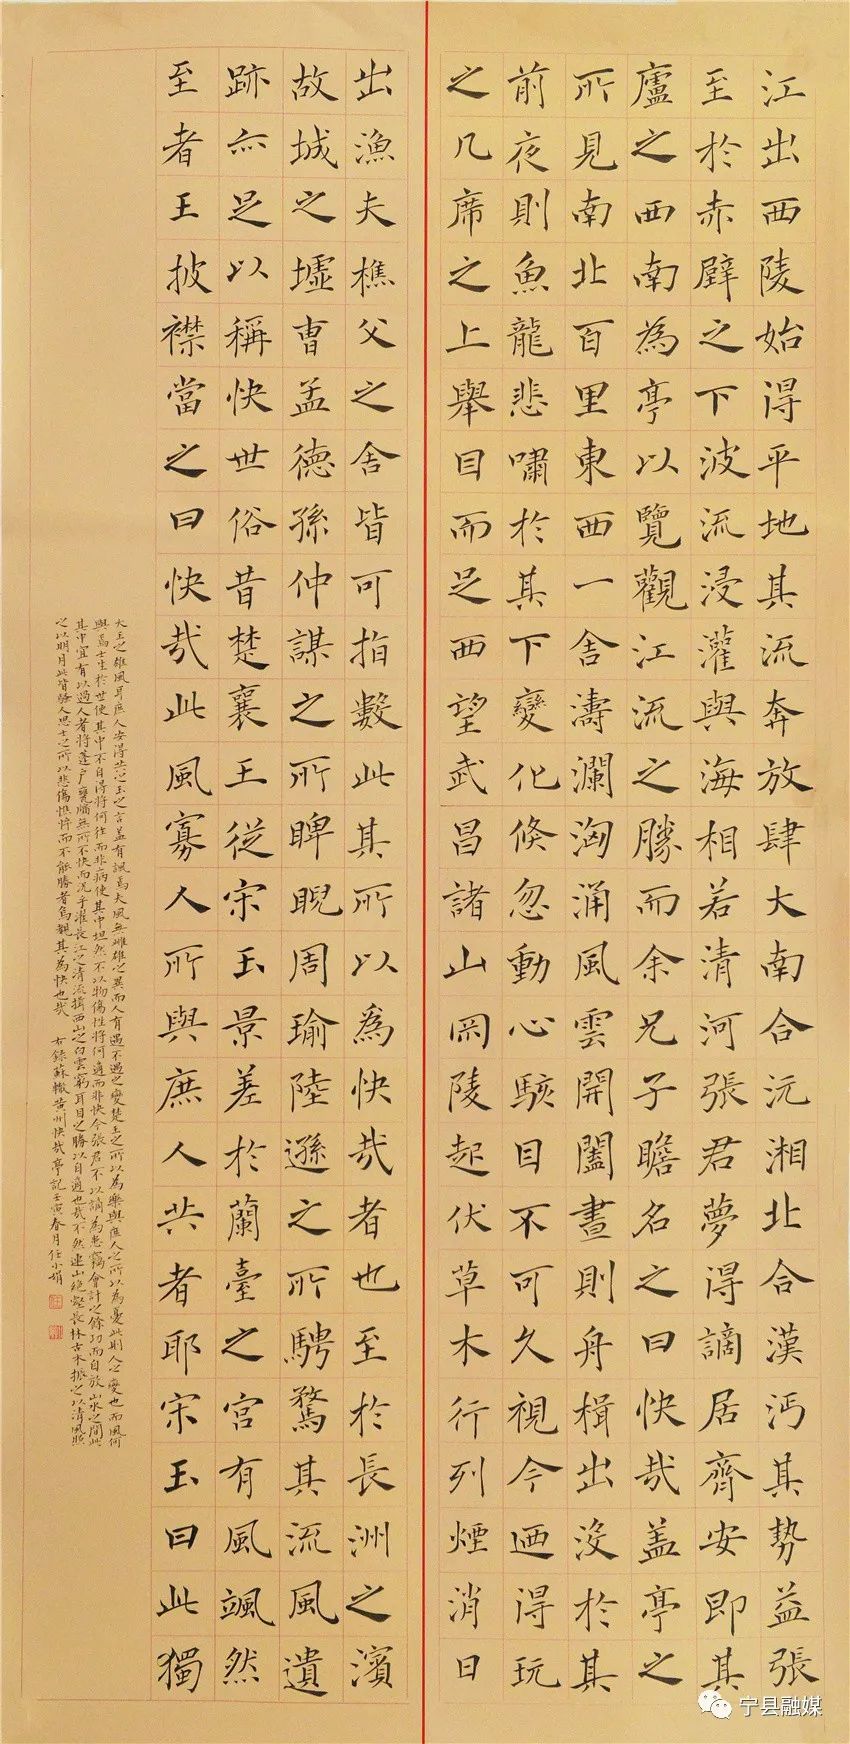 江出西陵始得平地其流奔放肆大南合沅湘北合漢沔其勢益張
至於赤壁之下波流浸灌與海相若清河張君夢得謫居齊安即其
廬之西南為亭以覽觀江流之勝而余兄子瞻名之曰快哉蓋亭之
所見南北百里東西一舍濤瀾洶涌風雲開闔晝則舟楫出沒於其
前夜則魚龍悲嘯於其下變化倏忽動心駭目不可久視今迺得玩
之几席之上舉目而足西望武昌諸山岡陵起伏草木行列煙消日
出漁夫樵父之舍皆可指數此其所以為快哉者也至於長洲之濱
故城之墟曹孟德孫仲謀之所睥睨周瑜陸遜之所騁騖其流風遺
跡亦足以稱快世俗昔楚襄王從宋玉景差於蘭臺之宮有風颯然
至者王披襟當之曰快哉此風寡人所與庶人共者耶宋玉曰此獨
大王之雄風耳庶人安得共之玉之言蓋有諷焉夫風無雌雄之異而人有遇不遇之變楚王之所以為樂與庶人之所以為憂此則人之變也而風何
與焉士生於世使其中不自得將何往而非病使其中坦然不以物傷性將何適而非快今張君不以謫為患竊會計之餘功而自放山水之間此
其中宜有以過人者將蓬戶甕牖無所不快而況乎濯長江之清流揖西山之白雲窮耳目之勝以自適也哉不然連山絕壑長林古木振之以清風照
之以明月此皆騷人思士之所以悲傷憔悴而不能勝者烏覩其為快也哉 右錄蘇轍黃州快哉亭記壬寅春月任小娟
宁县融媒